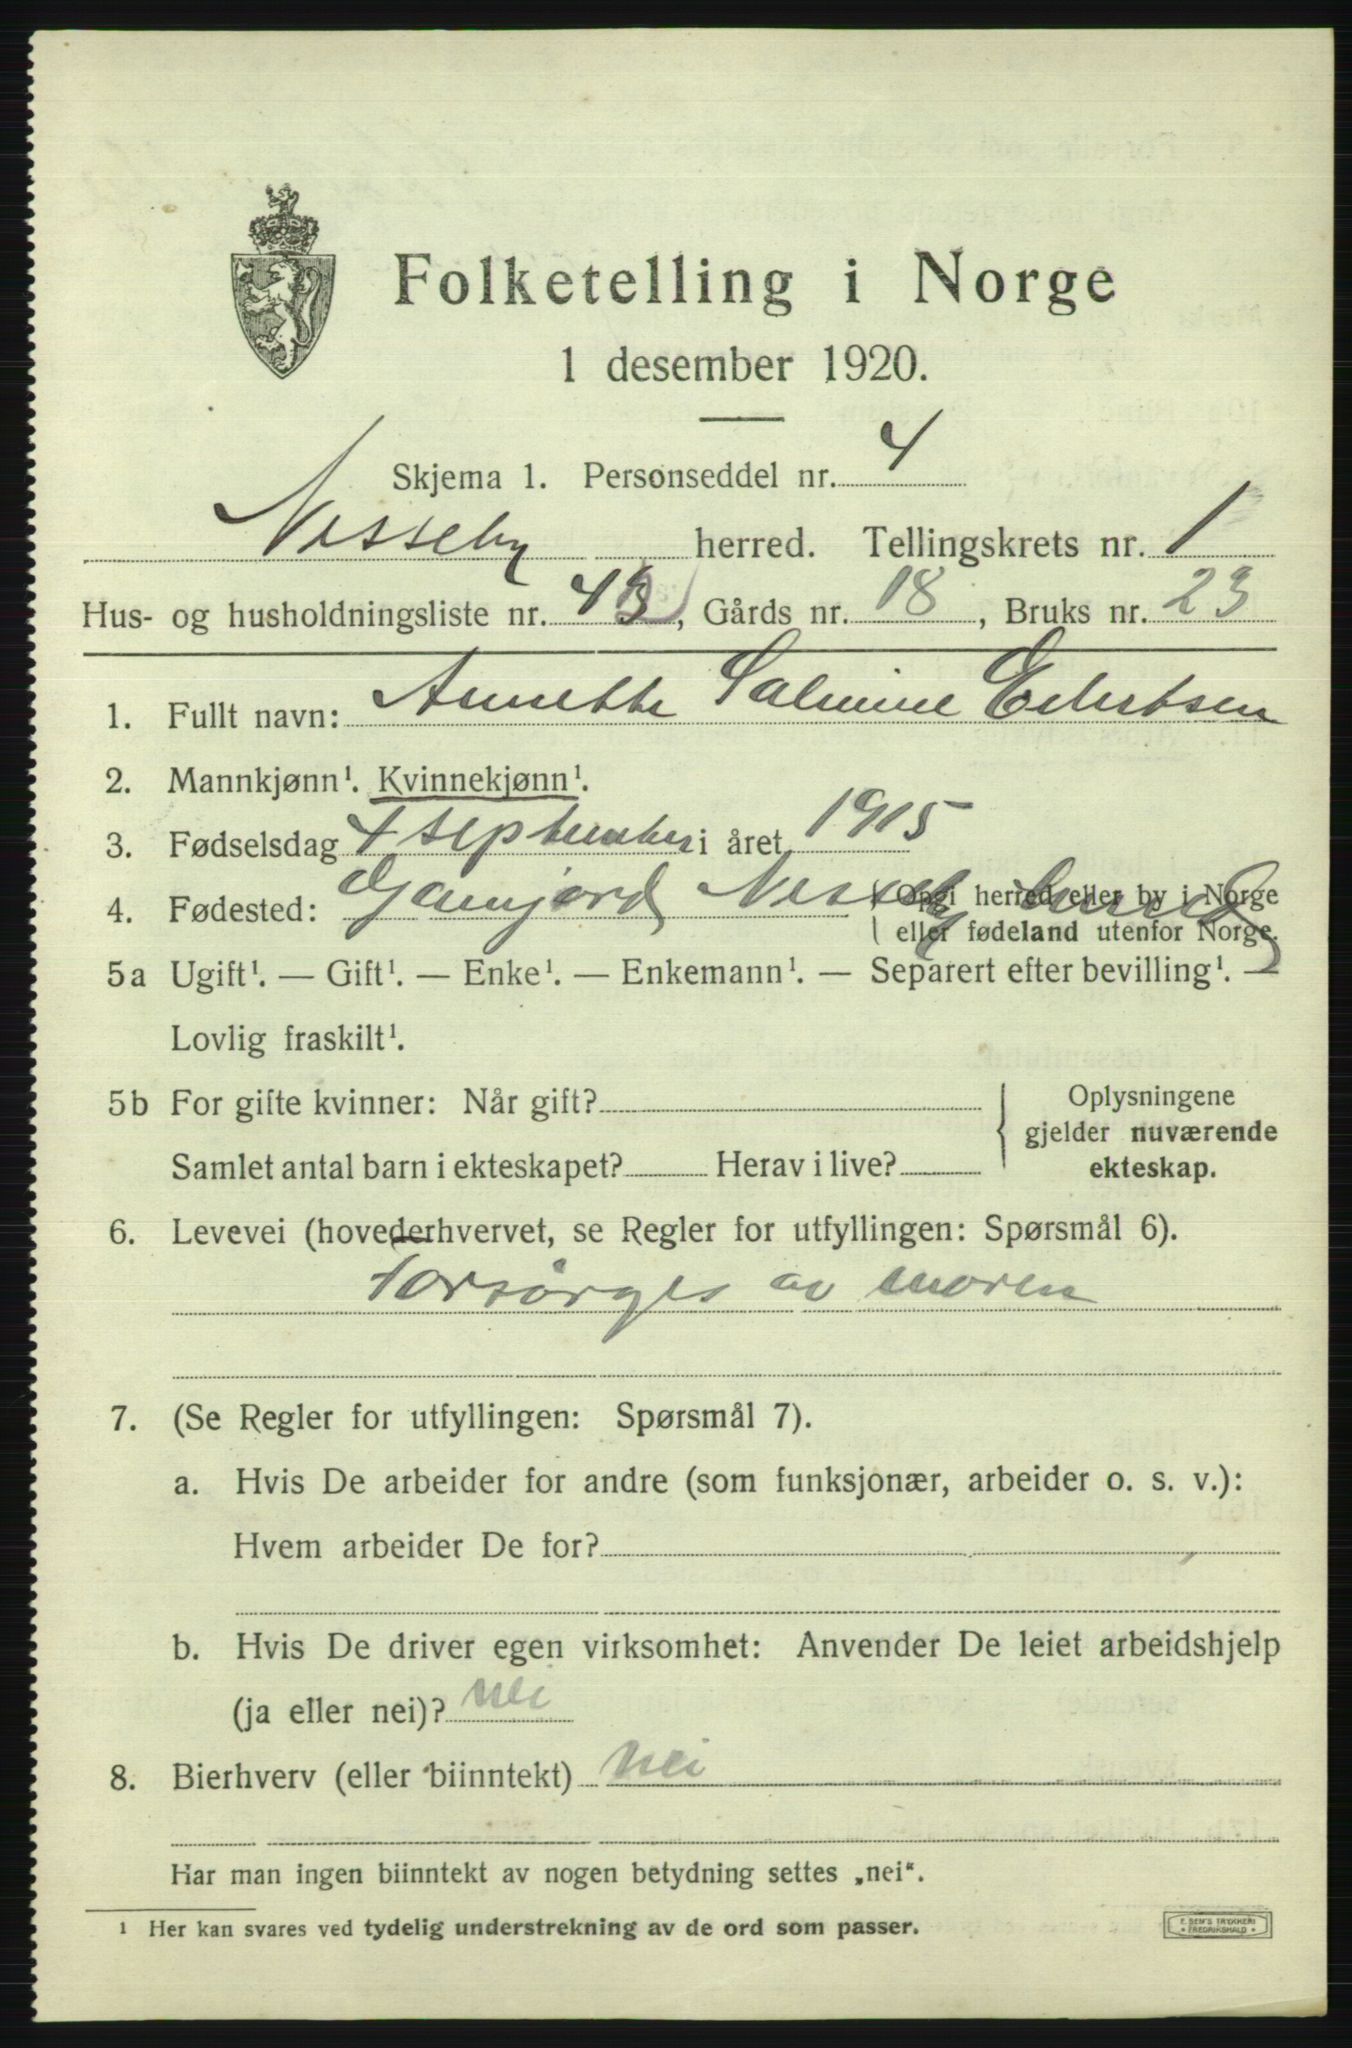 Folketelling i Norge
1 desember 1920.
Skjema 1. Personseddel nr. 4
Nesseby herred. Tellingskrets nr. 1
Hus- og husholdningsliste nr. 42, Gårds nr. 18, Bruks nr. 23
1. Fullt navn: Annette Salmine Edertsen
2. Mannkjønn¹. Kvinnekjønn¹.
3. Fødselsdag 4 september i året 1915
4. Fødested: Nesseby herred (Opgi herred eller by i Norge
eller fødeland utenfor Norge.
5a Ugift¹. — Gift¹. — Enke¹. — Enkemann¹. — Separert efter bevilling¹. —
Lovlig fraskilt¹.
5b For gifte kvinner: Når gift? Oplysningene
gjelder nuværende
Samlet antal barn i ekteskapet? Herav i live? ekteskap.
6. Levevei (hovederhvervet, se Regler for utfyllingen: Spørsmål 6).
Forsörges av moren
7. (Se Regler for utfyllingen: Spørsmål 7).
a. Hvis De arbeider for andre (som funksjonær, arbeider o. s. v.):
Hvem arbeider De for?
b. Hvis De driver egen virksomhet: Anvender De leiet arbeidshjelp
(ja eller nei)? nei
8. Bierhverv (eller biinntekt) nei
Har man ingen biinntekt av nogen betydning settes „nei“.
¹ Her kan svares ved tydelig understrekning av de ord som passer.
E. SEM'S TRYKKERI
FREDRIKSHALD